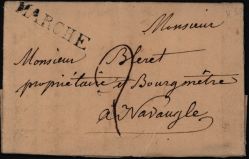 Ma
MARCHE
Monsieur
Monsieur Bleret
propriétaire et Bourgmêtre
à Navaugle